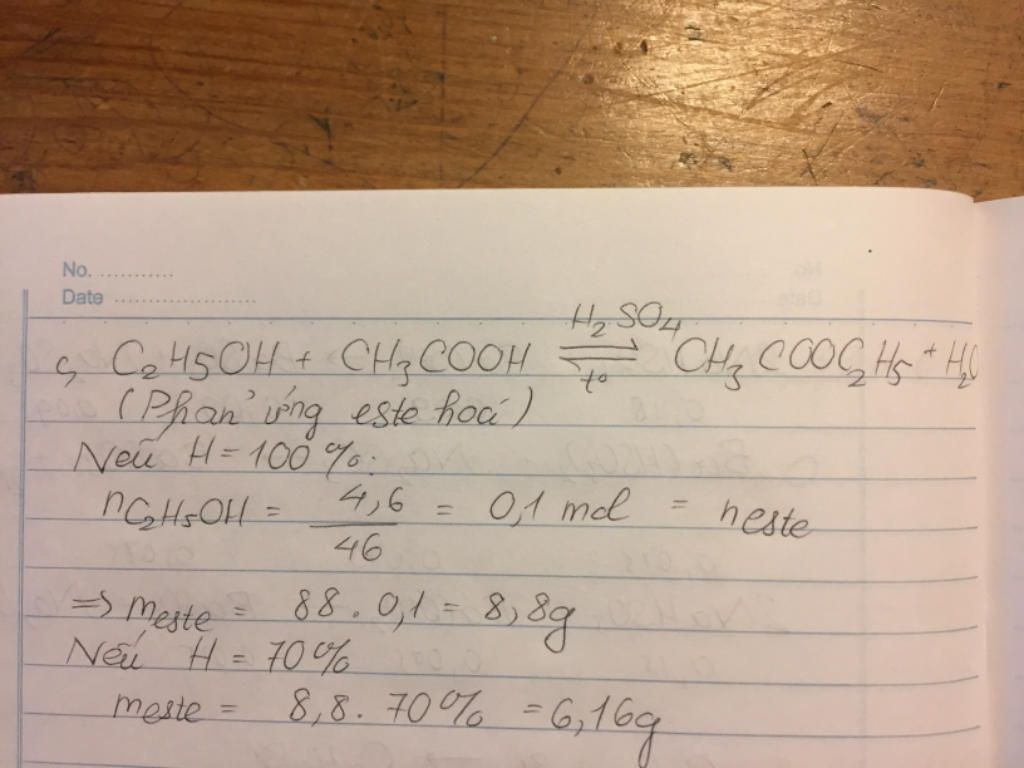 No. ...........
Date .....................
c, C₂H5OH + CH₃COOH ⇌ (H₂SO₄, t°) CH₃COOC₂H₅ + H₂O
(Phản ứng este hoá)
Nếu H = 100%:
nC₂H₅OH = 4,6 / 46 = 0,1 mol = neste
=> meste = 88 . 0,1 = 8,8g
Nếu H = 70%
meste = 8,8 . 70% = 6,16g